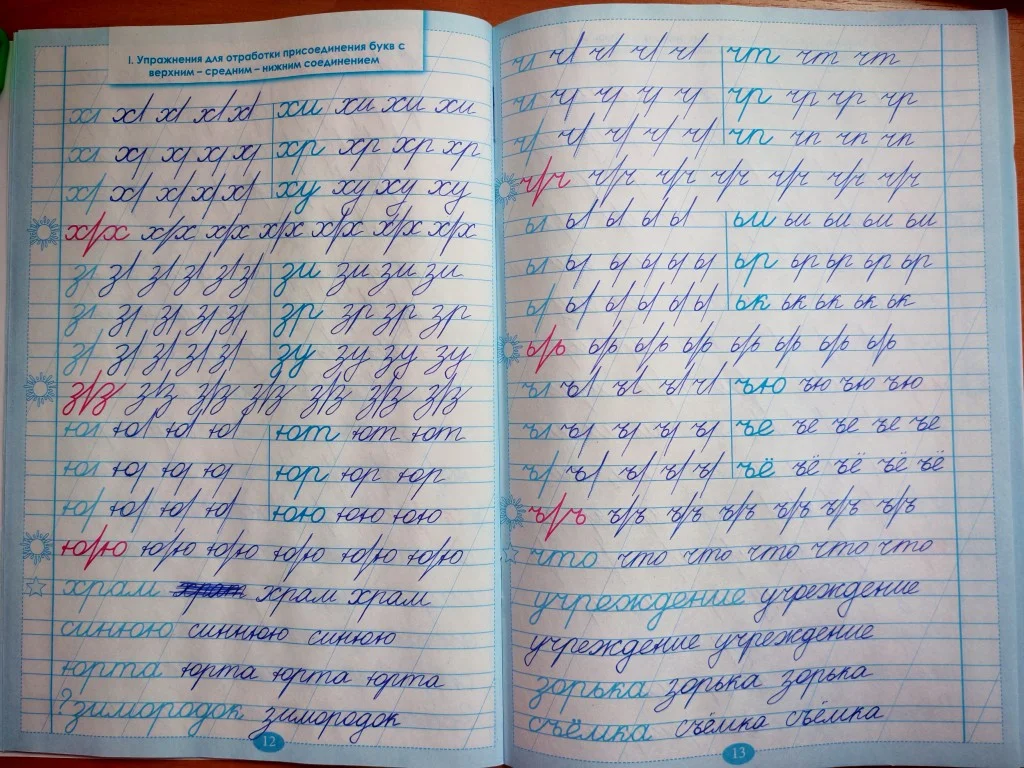 I. Упражнения для отработки присоединения букв с
верхним – средним – нижним соединением
х/ х/ х/ х/ х/ хи хи хи хи
х/ х/ х/ х/ х/ хр хр хр хр
х/ х/ х/ х/ х/ ху ху ху ху
х/х х/х х/х х/х х/х х/х х/х
з/ з/ з/ з/ з/ зи зи зи зи
з/ з/ з/ з/ з/ зр зр зр зр
з/ з/ з/ з/ з/ зу зу зу зу
з/з з/з з/з з/з з/з з/з з/з
ю/ ю/ ю/ ю/ ют ют ют
ю/ ю/ ю/ ю/ юр юр юр
ю/ ю/ ю/ ю/ юю юю юю
ю/ю ю/ю ю/ю ю/ю ю/ю ю/ю
храм храм храм
синюю синнюю синюю
юрта юрта юрта юрта
?зимородок зимородок
12
ч/ ч/ ч/ ч/ ч/ чт чт чт
ч/ ч/ ч/ ч/ ч/ чр чр чр чр
ч/ ч/ ч/ ч/ ч/ чп чп чп чп
ч/ч ч/ч ч/ч ч/ч ч/ч ч/ч ч/ч
ь/ ь/ ь/ ь/ ь/ ьи ьи ьи ьи ьи
ь/ ь/ ь/ ь/ ь/ ь/ ьр ьр ьр ьр ьр
ь/ ь/ ь/ ь/ ь/ ь/ ьк ьк ьк ьк ьк
ь/ь ь/ь ь/ь ь/ь ь/ь ь/ь ь/ь ь/ь
ъ/ ъ/ ъ/ ъ/ ъ/ ъю ъю ъю ъю
ъ/ ъ/ ъ/ ъ/ ъ/ ъе ъе ъе ъе ъе
ъ/ ъ/ ъ/ ъ/ ъ/ ъё ъё ъё ъё ъё
ъ/ъ ъ/ъ ъ/ъ ъ/ъ ъ/ъ ъ/ъ ъ/ъ
что что что что что что
учреждение учреждение
учреждение учреждение
зорька зорька зорька
съёмка съёмка съёмка
13